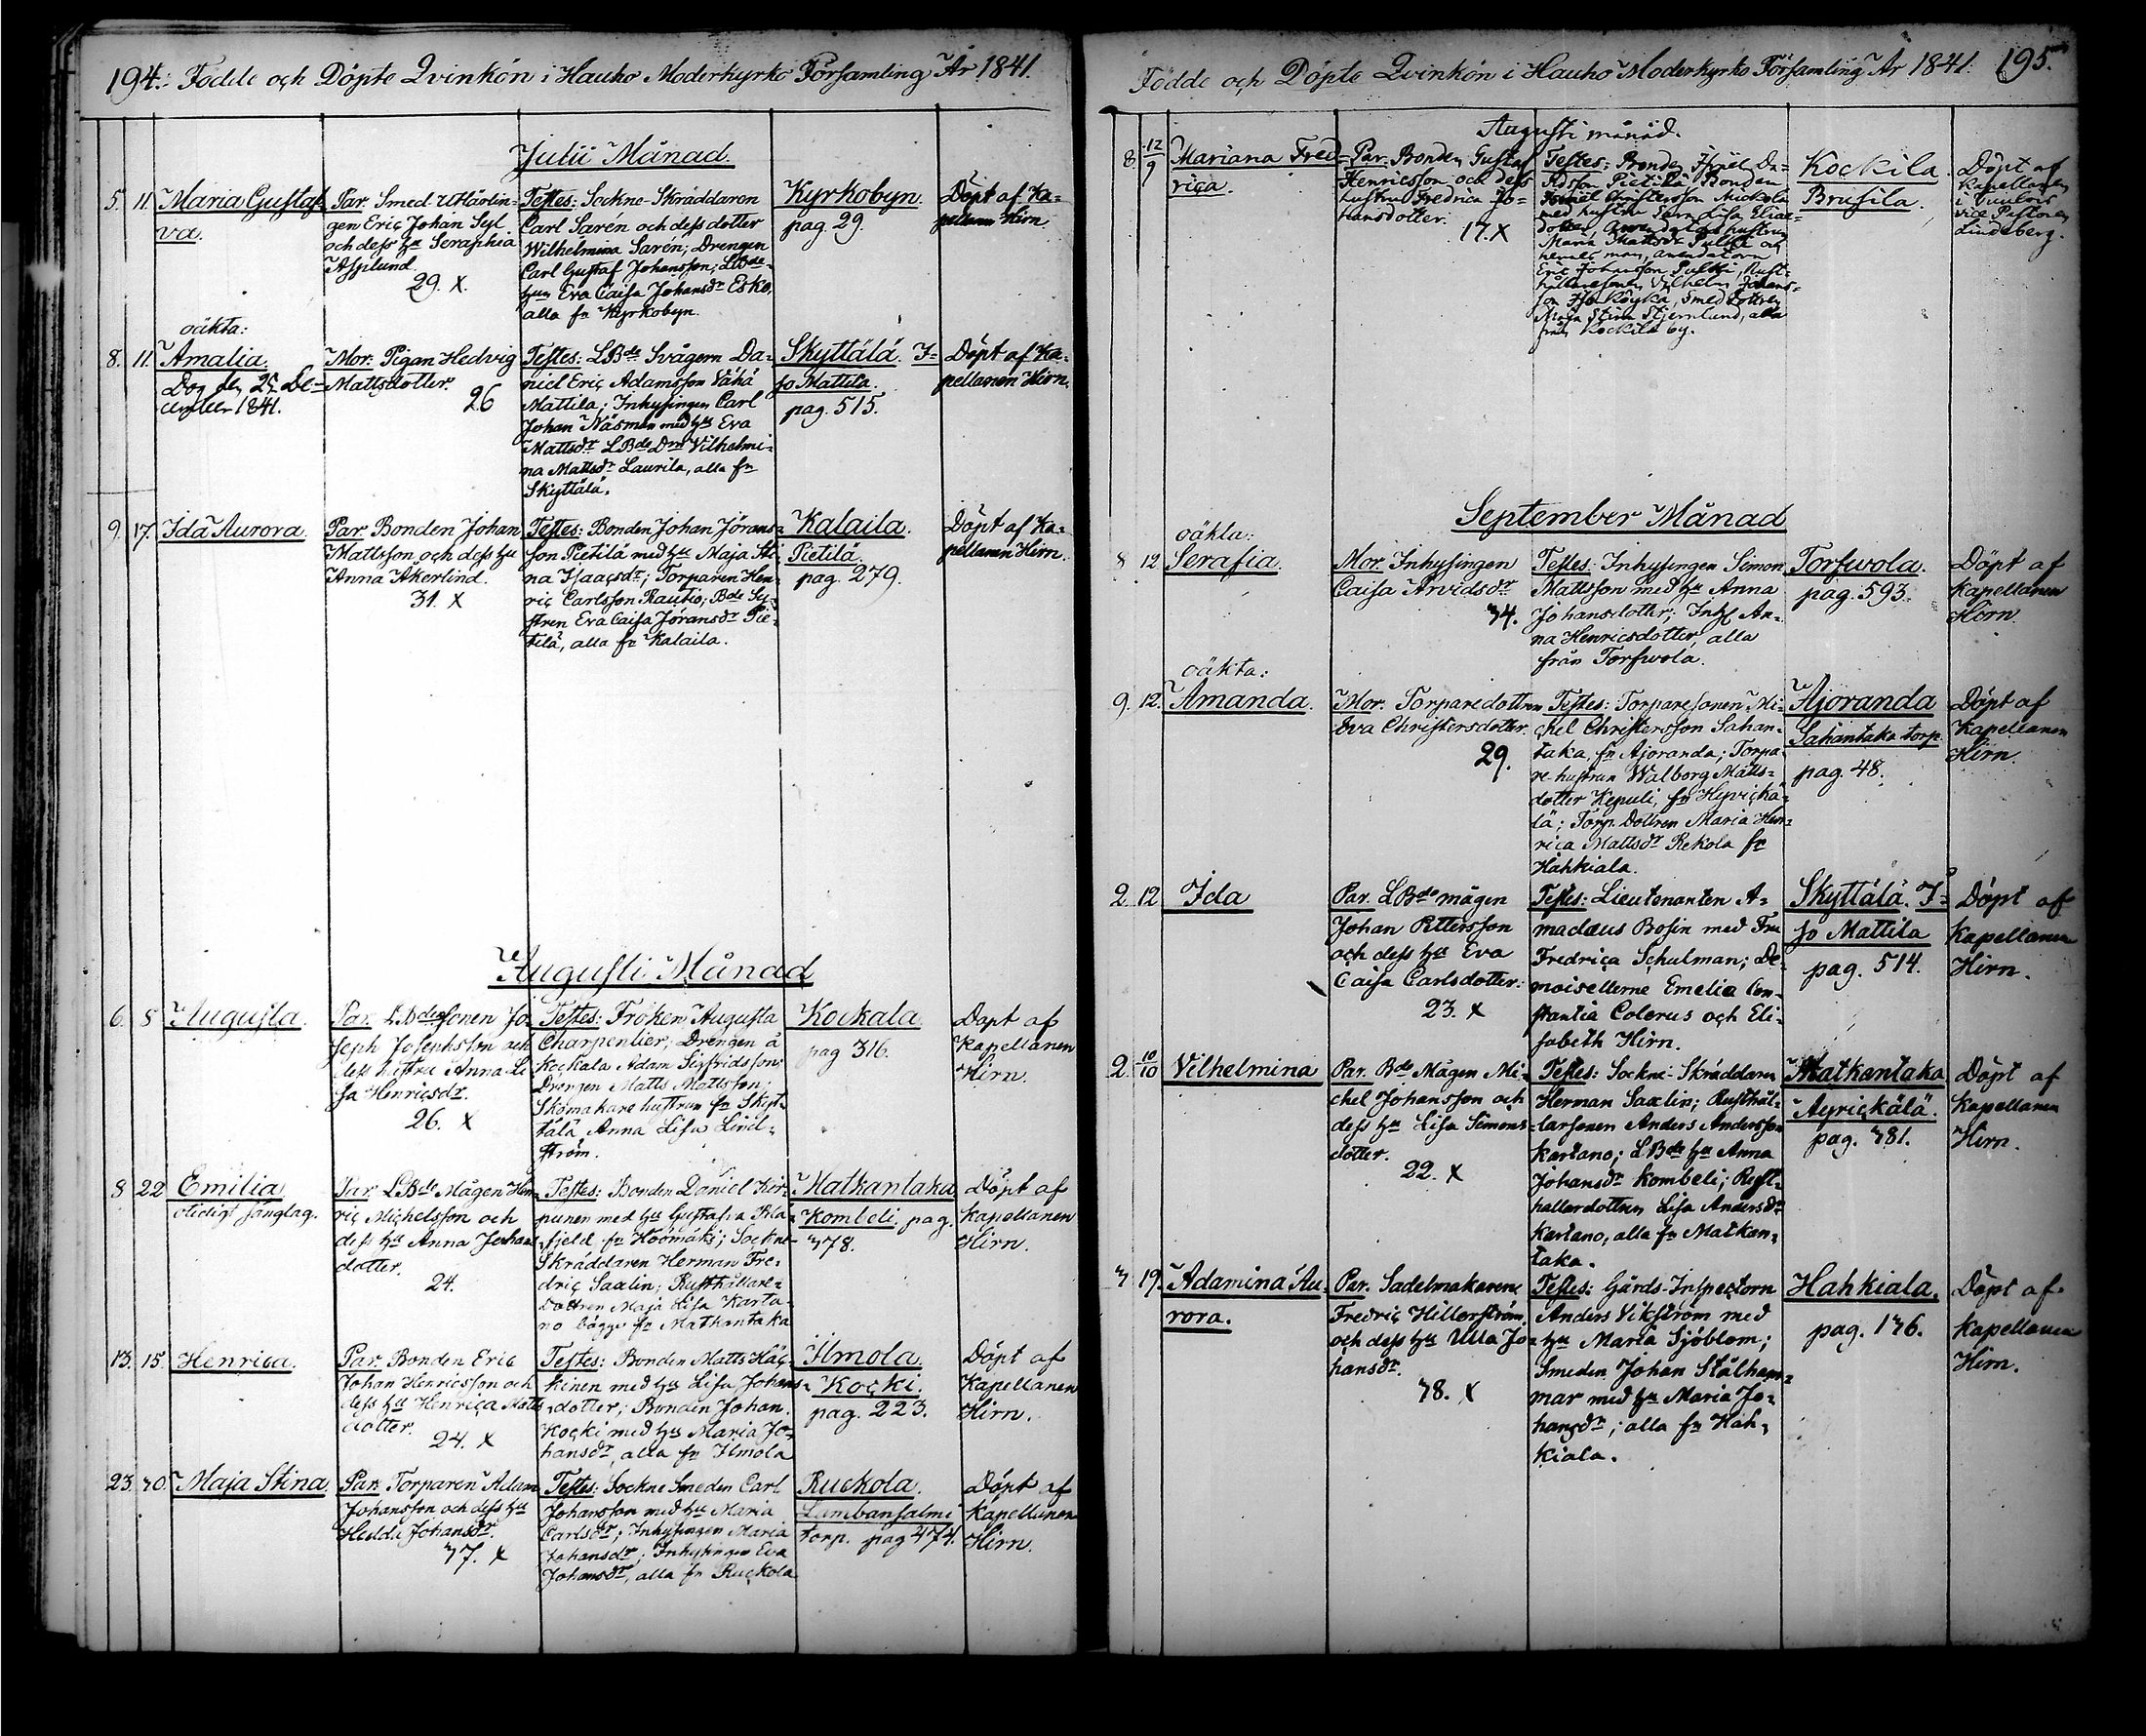 194. Födde och Döpte Qvinkön i Hauho Moderkyrko Församling År 1841.
Julii Månad.
5. 11. Maria Gustaf-
va.
Par. Smed
gen Eric Johan Syl
och dess hu Seraphia
Asplund.
29. X.
Testes: Sockne Skräddaren
Carl Sarén och dess dotter
Wilhelmina Sarén; Drengen
Carl Gustaf Johansson; LBde
hun Eva Caisa Johansdr Esko,
alla fn Kyrkobyn.
Kyrkobyn.
pag. 29.
Döpt af Ka-
pellanen Hirn.
oäkta:
8. 11. Amalia.
Dog den 25 De-
cember 1841.
Mor: Pigan Hedvig
Mattsdotter.
26
Testes: LBde Svågern Da-
niel Eric Adamsson Vähä
Mattila; Inhysingen Carl
Johan Näsman med hu Eva
Mattsdr LBde Dm Vilhelmi-
na Mattsdr Laurila, alla fn
Skyttälä.
Skyttälä. I-
so Mattila.
pag. 515.
Döpt af Ka-
pellanen Hirn.
9. 17. Ida Aurora.
Par. Bonden Johan
Mattsson och dess hu
Anna Åkerlind.
31. X
Testes: Bonden Johan Jörans-
son Pietilä med hu Maja Sti-
na Isaacsdr; Torparen Hen-
ric Carlsson Rautio; Bde Sy-
stren Eva Caisa Jöransdr Pie-
tilä, alla fn Kalaila.
Kalaila.
Pietilä.
pag. 279.
Döpt af Ka-
pellanen Hirn.
Augusti Månad
6. 8 Augusta.
Par. LBdesonen Jo-
seph Josephsson och
dess hustru Anna Li
sa Henricsdr.
26. X
Testes: Fröken Augusta
Charpentier; Drengen å
Kockala Adam Sigfridsson
Drengen Matts Mattsson;
Skomakare hustrun fn Skyt-
tälä Anna Lisa Lind-
ström.
Kockala.
pag 316.
Döpt af
Kapellanen
Hirn.
8 22 Emilia
Par. LBde Mågen Hen-
ric Michelsson och
dess hu Anna Johans
dotter.
24.
Testes: Bonden Daniel Kor-
punen med hu Gustafva Bla-
fjeld fn Hoomäki; Sockne
Skräddaren Herman Fre-
dric Saxlin; Rusthållare-
Dottren Maja Lisa Karta-
no bägge fn Matkantaka
Matkantaka
Kombeli, pag.
378.
Döpt af
Kapellanen
Hirn.
13. 15. Henrica.
Par. Bonden Eric
Johan Henricsson och
dess hu Henrica Matts
dotter.
24. X
Testes: Bonden Matts Häc-
kinen med hu Lisa Johans
dotter; Bonden Johan
Kocki med hu Maria Jo-
hansdr, alla fn Ilmola
Ilmola.
Kocki.
pag. 223.
Döpt af
Kapellanen
Hirn.
23. 30. Maja Stina.
Par. Torparen Adam
Johansson och dess hu
Hedda Johansdr.
37. X
Testes: Sockne Smeden Carl
Johansson med hu Maria
Carlsdr; Inhysingen Maria
Johansdr; Inhysingen Eva
Johansdr, alla fn Ruckola
Ruckola.
Lambansalmi
torp. pag 474.
Döpt af
Kapellanen
Hirn.
Födde och Döpte Qvinkön i Hauho Moderkyrko Församling År 1841. 195.
Augusti månad.
8. 12/9 Mariana Fred-
rica.
Par. Bonden Gustaf
Henricsson och dess
hustru Fredrica Jo-
hansdotter.
17. X
Testes: Bonden Israel Da-
vidsson Pietilä Bonden
Christersson Nickola
med hustru Sara Lisa Elias-
dotter, Arrendators hustrun
Maria Mattsdr Pulkki och
hennes man, arrendatorn
Eric Johansson Pulkki, Rust-
hållaresonen Vilhelm Johans-
son Iso Köykä, Smed Dottren
Maja Stina Stjernlund, alla
från Kockila by.
Kockila.
Brusila.
Döpt af
Kapellanen
i Tuulois
vice Pastoren
Lindeberg.
September Månad
oäkta:
8 12 Serafia.
Mor. Inhysingen
Caisa Arvidsdr
34.
Testes: Inhysingen Simon
Mattsson med hu Anna
Johansdotter; Inhs An-
na Henricsdotter, alla
från Torfwola.
Torfwola.
pag. 593.
Döpt af
Kapellanen
Hirn.
oäkta:
9. 12. Amanda.
Mor. Torparedottren
Eva Christersdotter.
29.
Testes: Torparesonen Mi-
chel Christersson Sahan-
taka fn Ajoranda; Torpa-
re hustrun Walborg Matts-
dotter Kepuli, fn Hyvickä-
lä; Torp. Dottren Maria Hen-
rica Mattsdr Rekola fn
Hahkiala.
Ajoranda
Sahantaka torp
pag. 48.
Döpt af
Kapellanen
Hirn.
2 12 Ida
Par. LBde mågen
Johan Pettersson
och dess hu Eva
Caisa Carlsdotter.
23. X
Testes: Lieutenanten A-
madæus Bosin med Fru
Fredrica Schulman; De-
moisellerne Emelie Con-
stantia Colerus och Eli-
sabeth Hirn.
Skyttälä. I-
so Mattila
pag. 514.
Döpt af
Kapellanen
Hirn.
2. 10/10 Vilhelmina
Par. Bde Mågen Mi-
chel Johansson och
dess hu Lisa Simons
dotter.
22. X
Testes: Sockne Skräddaren
Herman Saxlin; Rusthål-
laresonen Anders Andersson
Kartano; LBde hu Anna
Johansdr Kombeli; Rust-
hallardottren Lisa Andersdr
Kartano, alla fn Matkan-
taka.
Matkantaka
Äyrickälä.
pag. 381.
Döpt af
Kapellanen
Hirn.
3 19. Adamina Au-
rora.
Par. Sadelmakaren
Fredric Hillerström
och dess hu Ulla Jo
hansdr.
38. X
Testes: Gårds-Inspectorn
Anders Vikström med
hu Maria Sjöblom;
Smeden Johan Stålham-
mar med hu Maria Jo-
hansdr; alla fn Hah-
kiala.
Hahkiala.
pag. 136.
Döpt af
Kapellanen
Hirn.